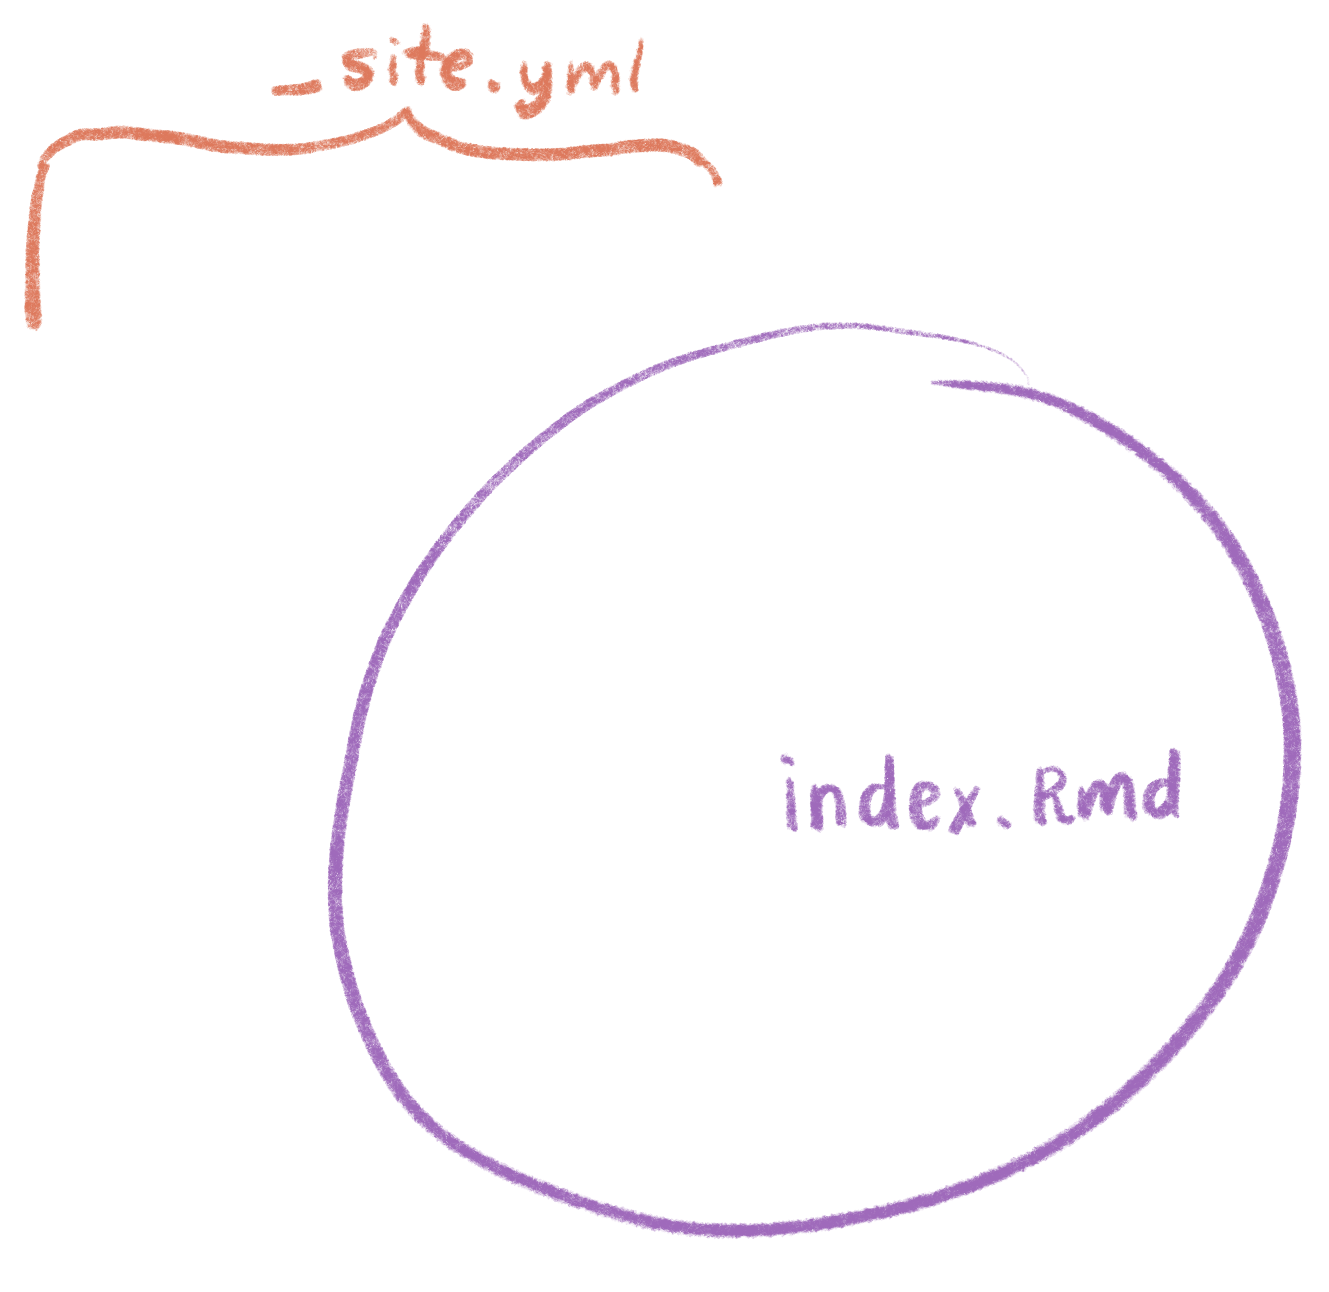 _site.yml
index.Rmd